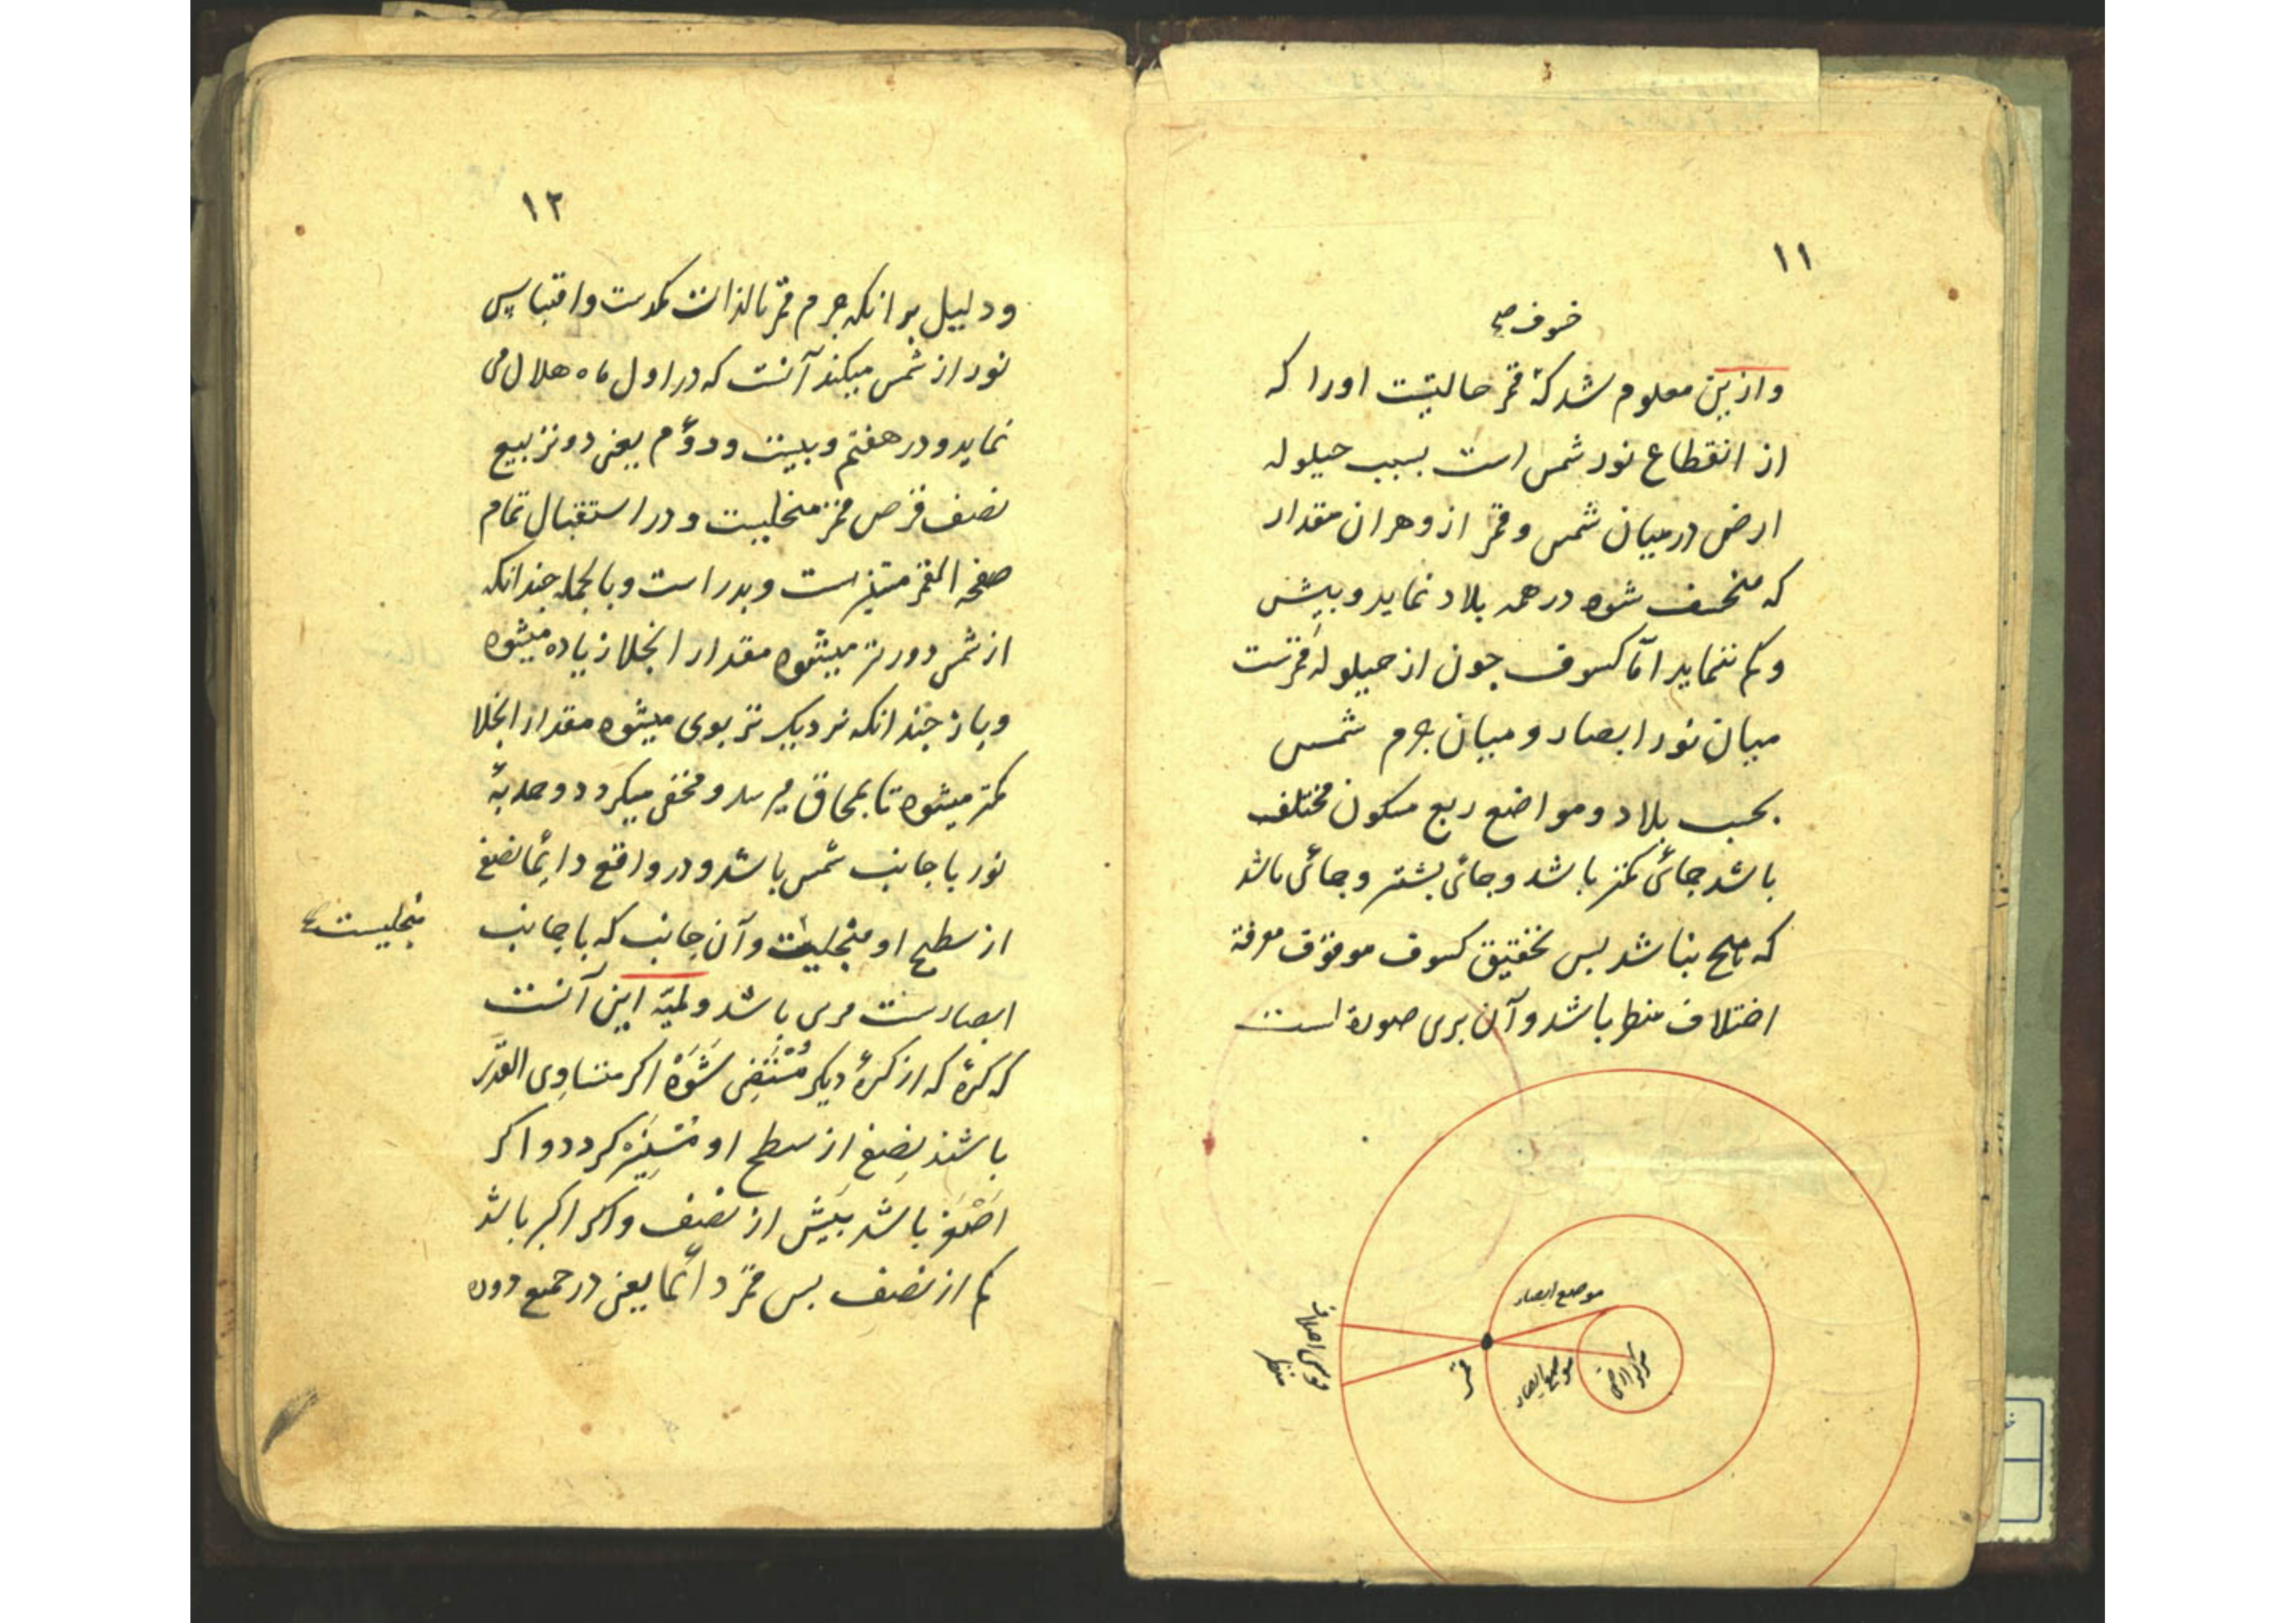 ١١
خسوف صح
وازین معلوم شد که قمر حالتیست اورا که
از انقطاع نور شمس است بسبب حیلوله
ارض درمیان شمس و قمر ازو هران مقدار
که منخسف شوه درهمه بلاد نماید و بیش
و کم ننماید امّا کسوف جون از حیلولهٔ قمرست
میان نور ابصار و میان جرم شمس
بحسب بلاد و مواضع ربع مسکون مختلف
باشد جائی کمتر باشد و جائی بشتر و جائی باشد
که هیج بناشد بس تحقیق کسوف موقوف معرفة
اختلاف منظر باشد و آن برین صورة است
موضع ابصار
مرکز ارض
موضع ابصار
قمر
قوس اختلاف
منظر
١٢
و دلیل بر انکه جرم قمر بالذات کمدست و اقتباس
نور از شمس میکند آنست که در اول ماه هلال می
نماید و در هفتم و بیست و دوّم یعنی دو تربیع
نصف قرص قمر منجلیست و در استقبال تمام
صفحة القمر مستنیر است و بدر است و بالجمله جندانکه
از شمس دورتر میشوه مقدار انجلا زیاده میشوه
و باز جندانکه نزدیک تر بوی میشوه مقدار انجلا
کمتر میشوه تا بمحاق میرسد و مخفی میکردد و حدبهٔ
نور با جانب شمس باشد و در واقع دائما نصفی
از سطح او منجلیست و آن جانب که با جانب
منجلیست صح
ابصارست مرئی باشد و لمیّه این آنست
که کرهٔ که از کرهٔ دیکر مستضی شَوَهْ اکر متساوی القدر
باشند نصفی از سطح او مستنیر کردد و اکر
اصغر باشد بیش از نصف و اکر اکبر باشد
کم از نصف بس قمر دائما یعنی در جمیع دوره